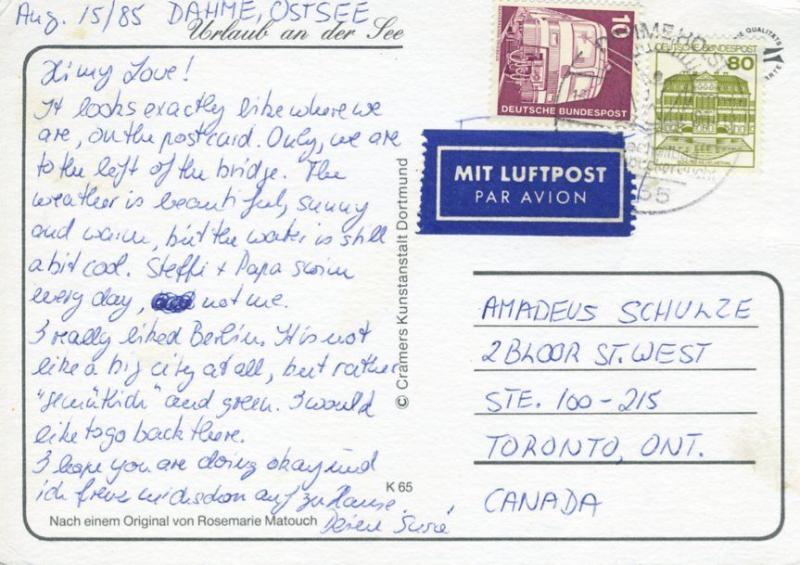 Aug. 15/85 DAHME, OSTSEE
Urlaub an der See
Hi my Love!
It looks exactly like where we
are, on the postcard. Only, we are
to the left of the bridge. The
weather is beautiful, sunny
and warm, but the water is still
a bit cool. Steffi + Papa swim
every day, not me.
I really liked Berlin. It is not
like a big city at all, but rather
"gemütlich" and green. I would
like to go back there.
I hope you are doing okay und
ich freue mich schon auf zu Hause.
Deine Susi
Nach einem Original von Rosemarie Matouch
K 65
© Cramers Kunstanstalt Dortmund
10
DEUTSCHE BUNDESPOST
DEUTSCHE BUNDESPOST
80
MIT LUFTPOST
PAR AVION
AMADEUS SCHULZE
2 BLOOR ST. WEST
STE. 100-215
TORONTO, ONT.
CANADA